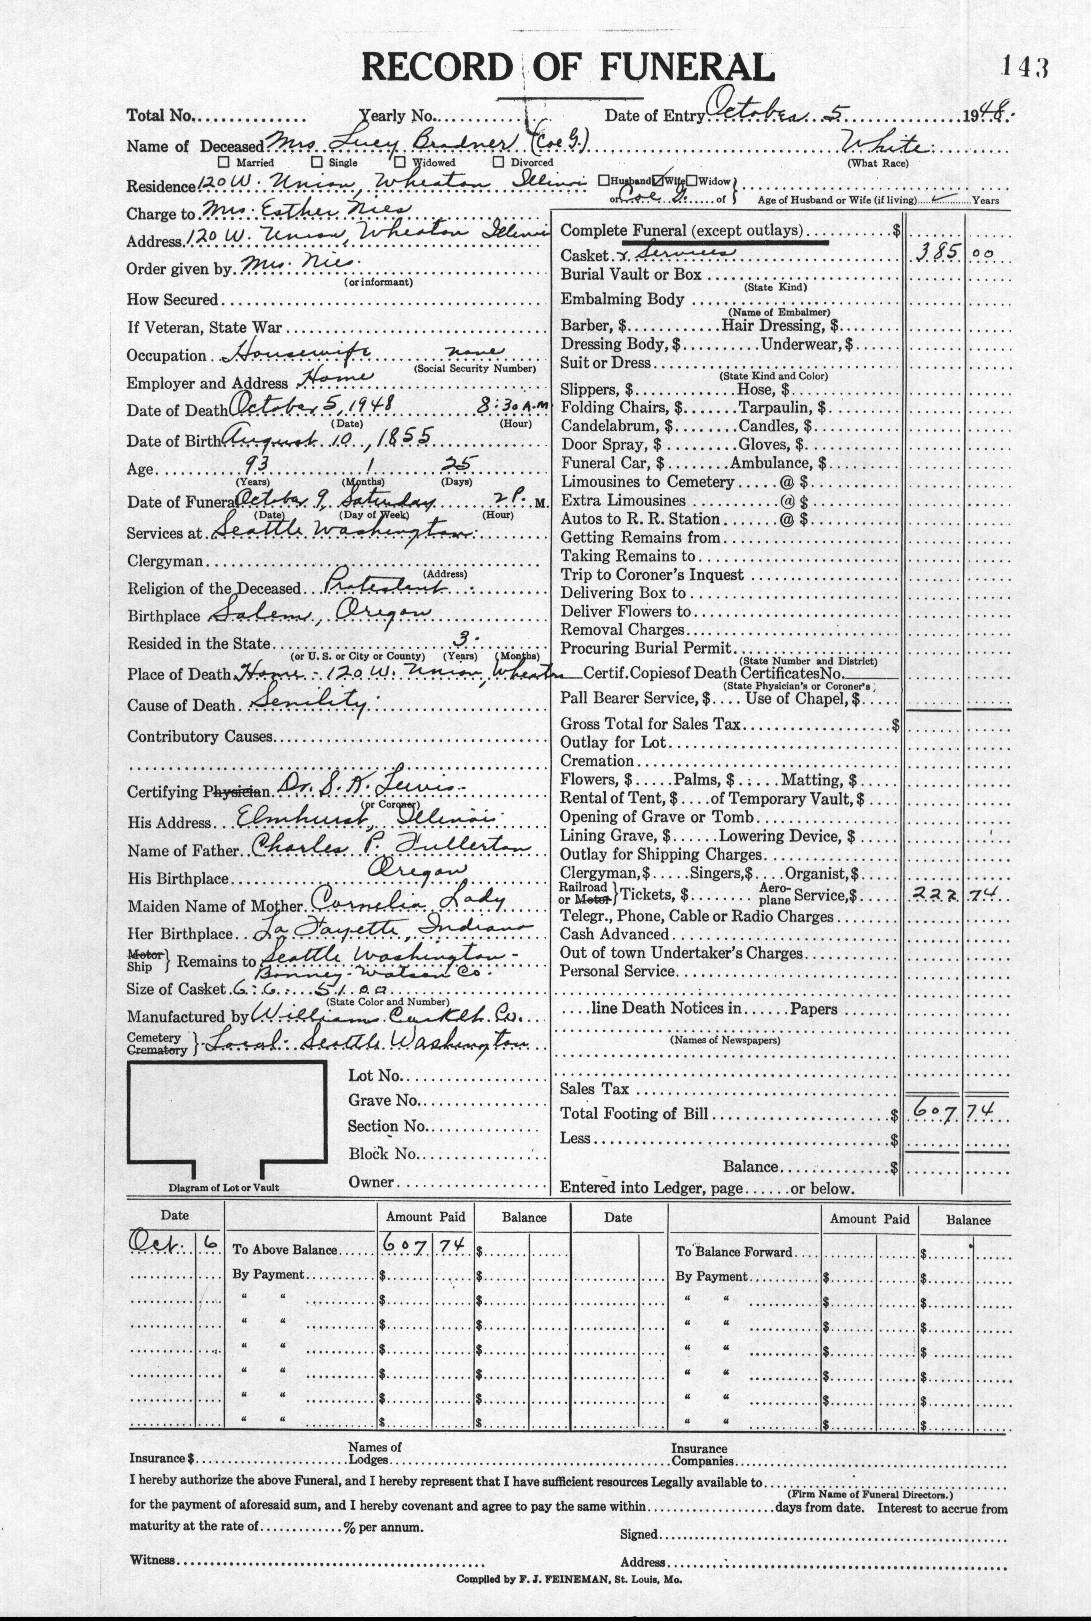 RECORD OF FUNERAL
143
Total No. Yearly No. Date of Entry October 5 1948.
Name of Deceased Mrs. Lucy Bradner (Coe G.) White.
☐ Married ☐ Single ☐ Widowed ☐ Divorced (What Race)
Residence 120 W. Union, Wheaton Illinois ☐ Husband ☑ Wife ☐ Widow }
or Coe G. of } Age of Husband or Wife (if living) ✓ Years
Charge to Mrs. Esther Nies
Address 120 W. Union, Wheaton Illinois
Order given by Mrs. Nies.
(or informant)
How Secured
If Veteran, State War
Occupation Housewife none
(Social Security Number)
Employer and Address Home
Date of Death October 5, 1948 8:30 A.M
(Date) (Hour)
Date of Birth August 10, 1855
Age 93 1 25
(Years) (Months) (Days)
Date of Funeral October 9, Saturday 2 P. M.
(Date) (Day of Week) (Hour)
Services at Seattle Washington.
Clergyman
(Address)
Religion of the Deceased Protestant
Birthplace Salem, Oregon
Resided in the State 3.
(or U. S. or City or County) (Years) (Months)
Place of Death Home - 120 W. Union, Wheaton
Cause of Death Senility.
Contributory Causes
Certifying Physician Dr. S. K. Lewis-
(or Coroner)
His Address Elmhurst, Illinois
Name of Father Charles P. Fullerton
His Birthplace Oregon
Maiden Name of Mother Cornelia Lady
Her Birthplace La Fayette, Indiana
Motor
Ship } Remains to Seattle Washington-
Bonney-Watson Co.
Size of Casket 6:6: 5100
(State Color and Number)
Manufactured by Williams Casket Co.
Cemetery
Crematory } Local - Seattle Washington
Lot No.
Grave No.
Section No.
Block No.
Owner
Diagram of Lot or Vault
Complete Funeral (except outlays) $
Casket & Services 385 00
Burial Vault or Box
(State Kind)
Embalming Body
(Name of Embalmer)
Barber, $ Hair Dressing, $
Dressing Body, $ Underwear, $
Suit or Dress
(State Kind and Color)
Slippers, $ Hose, $
Folding Chairs, $ Tarpaulin, $
Candelabrum, $ Candles, $
Door Spray, $ Gloves, $
Funeral Car, $ Ambulance, $
Limousines to Cemetery @ $
Extra Limousines @ $
Autos to R. R. Station @ $
Getting Remains from
Taking Remains to
Trip to Coroner's Inquest
Delivering Box to
Deliver Flowers to
Removal Charges
Procuring Burial Permit
(State Number and District)
Certif. Copies of Death Certificates No.
(State Physician's or Coroner's)
Pall Bearer Service, $ Use of Chapel, $
Gross Total for Sales Tax $
Outlay for Lot
Cremation
Flowers, $ Palms, $ Matting, $
Rental of Tent, $ of Temporary Vault, $
Opening of Grave or Tomb
Lining Grave, $ Lowering Device, $
Outlay for Shipping Charges
Clergyman, $ Singers, $ Organist, $
Railroad
or Motor } Tickets, $ Aeroplane Service, $ 222 74
Telegr., Phone, Cable or Radio Charges
Cash Advanced
Out of town Undertaker's Charges
Personal Service
line Death Notices in Papers
(Names of Newspapers)
Sales Tax
Total Footing of Bill $ 607 74
Less $
Balance $
Entered into Ledger, page or below.
Date Amount Paid Balance Date Amount Paid Balance
Oct. 6 To Above Balance 607 74 $ To Balance Forward $
By Payment $ $ By Payment $ $
" " $ $ " " $ $
" " $ $ " " $ $
" " $ $ " " $ $
" " $ $ " " $ $
" " $ $ " " $ $
" " $ $ " " $ $
Insurance $ Names of Lodges Insurance Companies
I hereby authorize the above Funeral, and I hereby represent that I have sufficient resources Legally available to
(Firm Name of Funeral Directors.)
for the payment of aforesaid sum, and I hereby covenant and agree to pay the same within days from date. Interest to accrue from
maturity at the rate of % per annum.
Signed
Witness Address
Compiled by F. J. FEINEMAN, St. Louis, Mo.